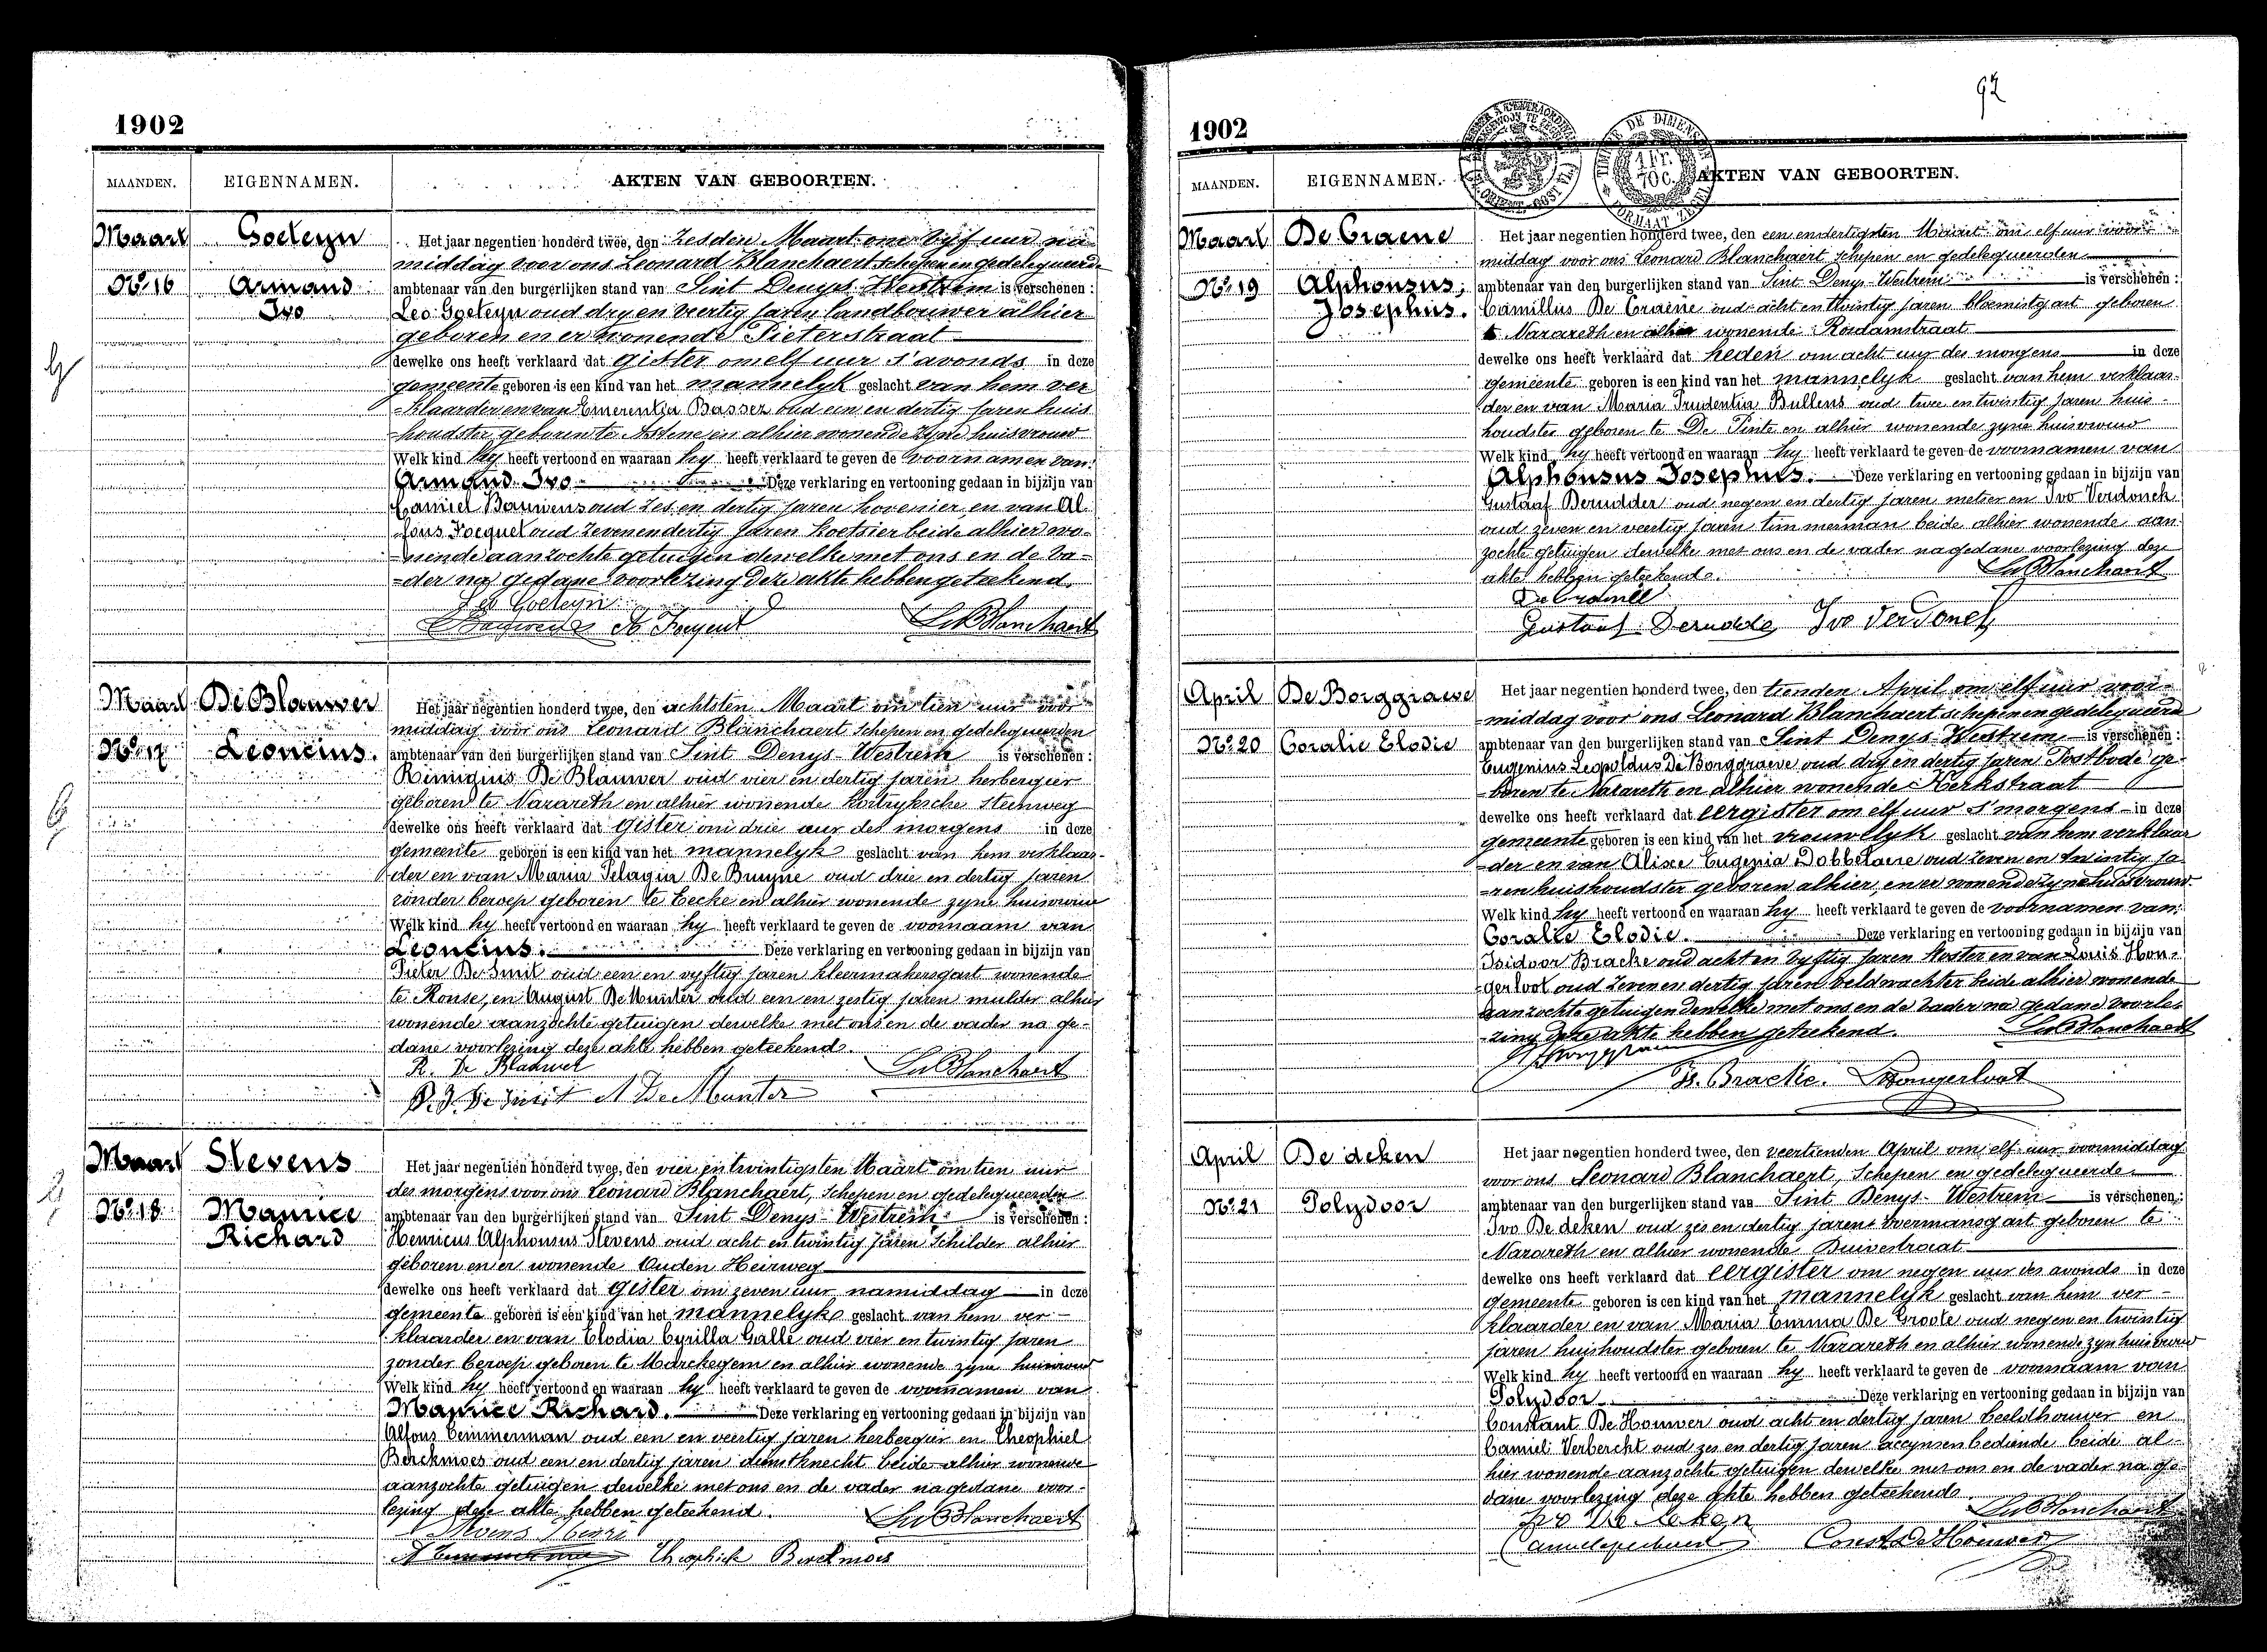 1902
MAANDEN. EIGENNAMEN. AKTEN VAN GEBOORTEN.
Maart Goeteyn
No. 16 Armand
Ivo
Het jaar negentien honderd twee, den zesden Maart om vyf uur na-
middag voor ons Leonard Blanchaert schepen en gedelegueerde
ambtenaar van den burgerlijken stand van Sint Denys-Westrem is verschenen :
Leo Goeteyn oud dry en veertig jaren landbouwer alhier
geboren en er wonende Pieterstraat
dewelke ons heeft verklaard dat gister om elf uur s'avonds in deze
gemeente geboren is een kind van het mannelyk geslacht van hem ver
-klaarder en van Emerentia Basser oud een en dertig jaren huis
-houdster geboren te Astene en alhier wonende zyne huisvrouw
Welk kind hy heeft vertoond en waaraan hy heeft verklaard te geven de voornamen van
Armand Ivo Deze verklaring en vertooning gedaan in bijzijn van
Camiel Bauwens oud zes en dertig jaren hovenier en van Al-
fons Focquet oud zeven en dertig jaren koetsier beide alhier wo-
-nende aanzochte getuigen dewelke met ons en de va-
-der na gedane voorlezing deze akte hebben geteekend.
Leo Goeteyn
LvBlanchaert
Maart De Blauwer
No. 17 Leoncius.
Het jaar negentien honderd twee, den achtsten Maart om tien uur voor
middag voor ons Leonard Blanchaert schepen en gedelegueerden
ambtenaar van den burgerlijken stand van Sint Denys-Westrem is verschenen :
Remigius De Blauwer oud vier en dertig jaren herbergier
geboren te Nazareth en alhier wonende Kortryksche steenweg
dewelke ons heeft verklaard dat gister om drie uur des morgens in deze
gemeente geboren is een kind van het mannelyk geslacht van hem verklaar-
der en van Maria Pelagia De Bruyne oud drie en dertig jaren
zonder beroep geboren te Eecke en alhier wonende zyne huisvrouw
Welk kind hy heeft vertoond en waaraan hy heeft verklaard te geven de voornaam van
Leoncius. Deze verklaring en vertooning gedaan in bijzijn van
Pieter De Smit oud een en vyftig jaren kleermakersgast wonende
te Ronse, en August De Munter oud een en zestig jaren mulder alhier
wonende aanzochte getuigen dewelke met ons en de vader na ge-
dane voorlezing deze akte hebben geteekend.
R. De Blauwer LvBlanchaert
P. J. De Smit A De Munter
Maart Stevens
No. 18 Maurice
Richard
Het jaar negentien honderd twee, den vier en twintigsten Maart om tien uur
des morgens voor ons Leonard Blanchaert, schepen en gedelegueerden
ambtenaar van den burgerlijken stand van Sint Denys-Westrem is verschenen :
Henricus Alphonsus Stevens oud acht en twintig jaren schilder alhier
geboren en er wonende Ouden Heirweg
dewelke ons heeft verklaard dat gister om zeven uur namiddag in deze
gemeente geboren is een kind van het mannelyk geslacht van hem ver-
klaarder en van Elodia Cyrilla Galle oud vier en twintig jaren
zonder beroep geboren te Marckegem en alhier wonende zyne huisvrouw
Welk kind hy heeft vertoond en waaraan hy heeft verklaard te geven de voornamen van
Maurice Richard. Deze verklaring en vertooning gedaan in bijzijn van
Alfons Temmerman oud een en veertig jaren herbergier en Theophiel
Berckmoes oud een en dertig jaren dienstknecht beide alhier wonende
aanzochte getuigen dewelke met ons en de vader na gedane voor-
lezing deze akte hebben geteekend. LvBlanchaert
Stevens Henri
A Temmerman Theophiel Berckmoes
92
1902
MAANDEN. EIGENNAMEN. AKTEN VAN GEBOORTEN.
Maart De Craene
No. 19 Alphonsus,
Josephus.
Het jaar negentien honderd twee, den een en dertigsten Maart om elf uur voor-
middag voor ons Leonard Blanchaert schepen en gedelegueerden
ambtenaar van den burgerlijken stand van Sint Denys-Westrem is verschenen :
Camillus De Craene oud acht en twintig jaren bloemistgast geboren
te Nazareth en alhier wonende Rosdamstraat
dewelke ons heeft verklaard dat heden om acht uur des morgens in deze
gemeente geboren is een kind van het mannelyk geslacht van hem verklaar-
der en van Maria Prudentia Bullens oud twee en twintig jaren huis-
houdster geboren te De Pinte en alhier wonende zyne huisvrouw
Welk kind hy heeft vertoond en waaraan hy heeft verklaard te geven de voornamen van
Alphonsus Josephus. Deze verklaring en vertooning gedaan in bijzijn van
Gustaaf Derudder oud negen en dertig jaren metser en Ivo Verdonck
oud zeven en veertig jaren timmerman beide alhier wonende aan-
zochte getuigen dewelke met ons en de vader na gedane voorlezing deze
akte hebben geteekend. LvBlanchaert
De Craene
Gustaaf Derudder Ivo Verdonck
April De Borggraeve
No. 20 Coralie Elodie
Het jaar negentien honderd twee, den tienden April om elf uur voor-
-middag voor ons Leonard Blanchaert schepen en gedelegueerd
ambtenaar van den burgerlijken stand van Sint Denys-Westrem is verschenen :
Eugenius Leopoldus De Borggraeve oud dry en dertig jaren Postbode ge-
-boren te Nazareth en alhier wonende Kerkstraat
dewelke ons heeft verklaard dat eergister om elf uur s'morgens in deze
gemeente geboren is een kind van het vrouwelyk geslacht van hem verklaar
-der en van Alixe Eugenia Dobbelaere oud zeven en twintig ja
-ren huishoudster geboren alhier en er wonende zyne huisvrouw
Welk kind hy heeft vertoond en waaraan hy heeft verklaard te geven de voornamen van
Coralie Elodie. Deze verklaring en vertooning gedaan in bijzijn van
Isidoor Bracke oud acht en vyftig jaren koster en van Louis Hon-
-gerloot oud zeven en dertig jaren veldwachter beide alhier wonende
aanzochte getuigen dewelke met ons en de vader na gedane voorle-
zing deze akte hebben geteekend. LvBlanchaert
Is. Bracke. L Hongerloot
April De deken
No. 21 Polydoor
Het jaar negentien honderd twee, den veertienden April om elf uur voormiddag
voor ons Leonard Blanchaert, Schepen en gedelegueerde
ambtenaar van den burgerlijken stand van Sint Denys-Westrem is verschenen :
Ivo De deken oud zes en dertig jaren voermansgast geboren te
Nazareth en alhier wonende Buivestraat
dewelke ons heeft verklaard dat eergister om negen uur des avonds in deze
gemeente geboren is een kind van het mannelyk geslacht van hem ver-
klaarder en van Maria Emma De Groote oud negen en twintig
jaren huishoudster geboren te Nazareth en alhier wonende zyn huisvrouw
Welk kind hy heeft vertoond en waaraan hy heeft verklaard te geven de voornaam van
Polydoor. Deze verklaring en vertooning gedaan in bijzijn van
Constant De Houwer oud acht en dertig jaren beeldhouwer en
Camiel Verbercht oud zes en dertig jaren accynsenbediende beide al-
hier wonende aanzochte getuigen dewelke met ons en de vader na ge-
dane voorlezing deze akte hebben geteekend.
Ivo De deken LvBlanchaert
Const De Houwer